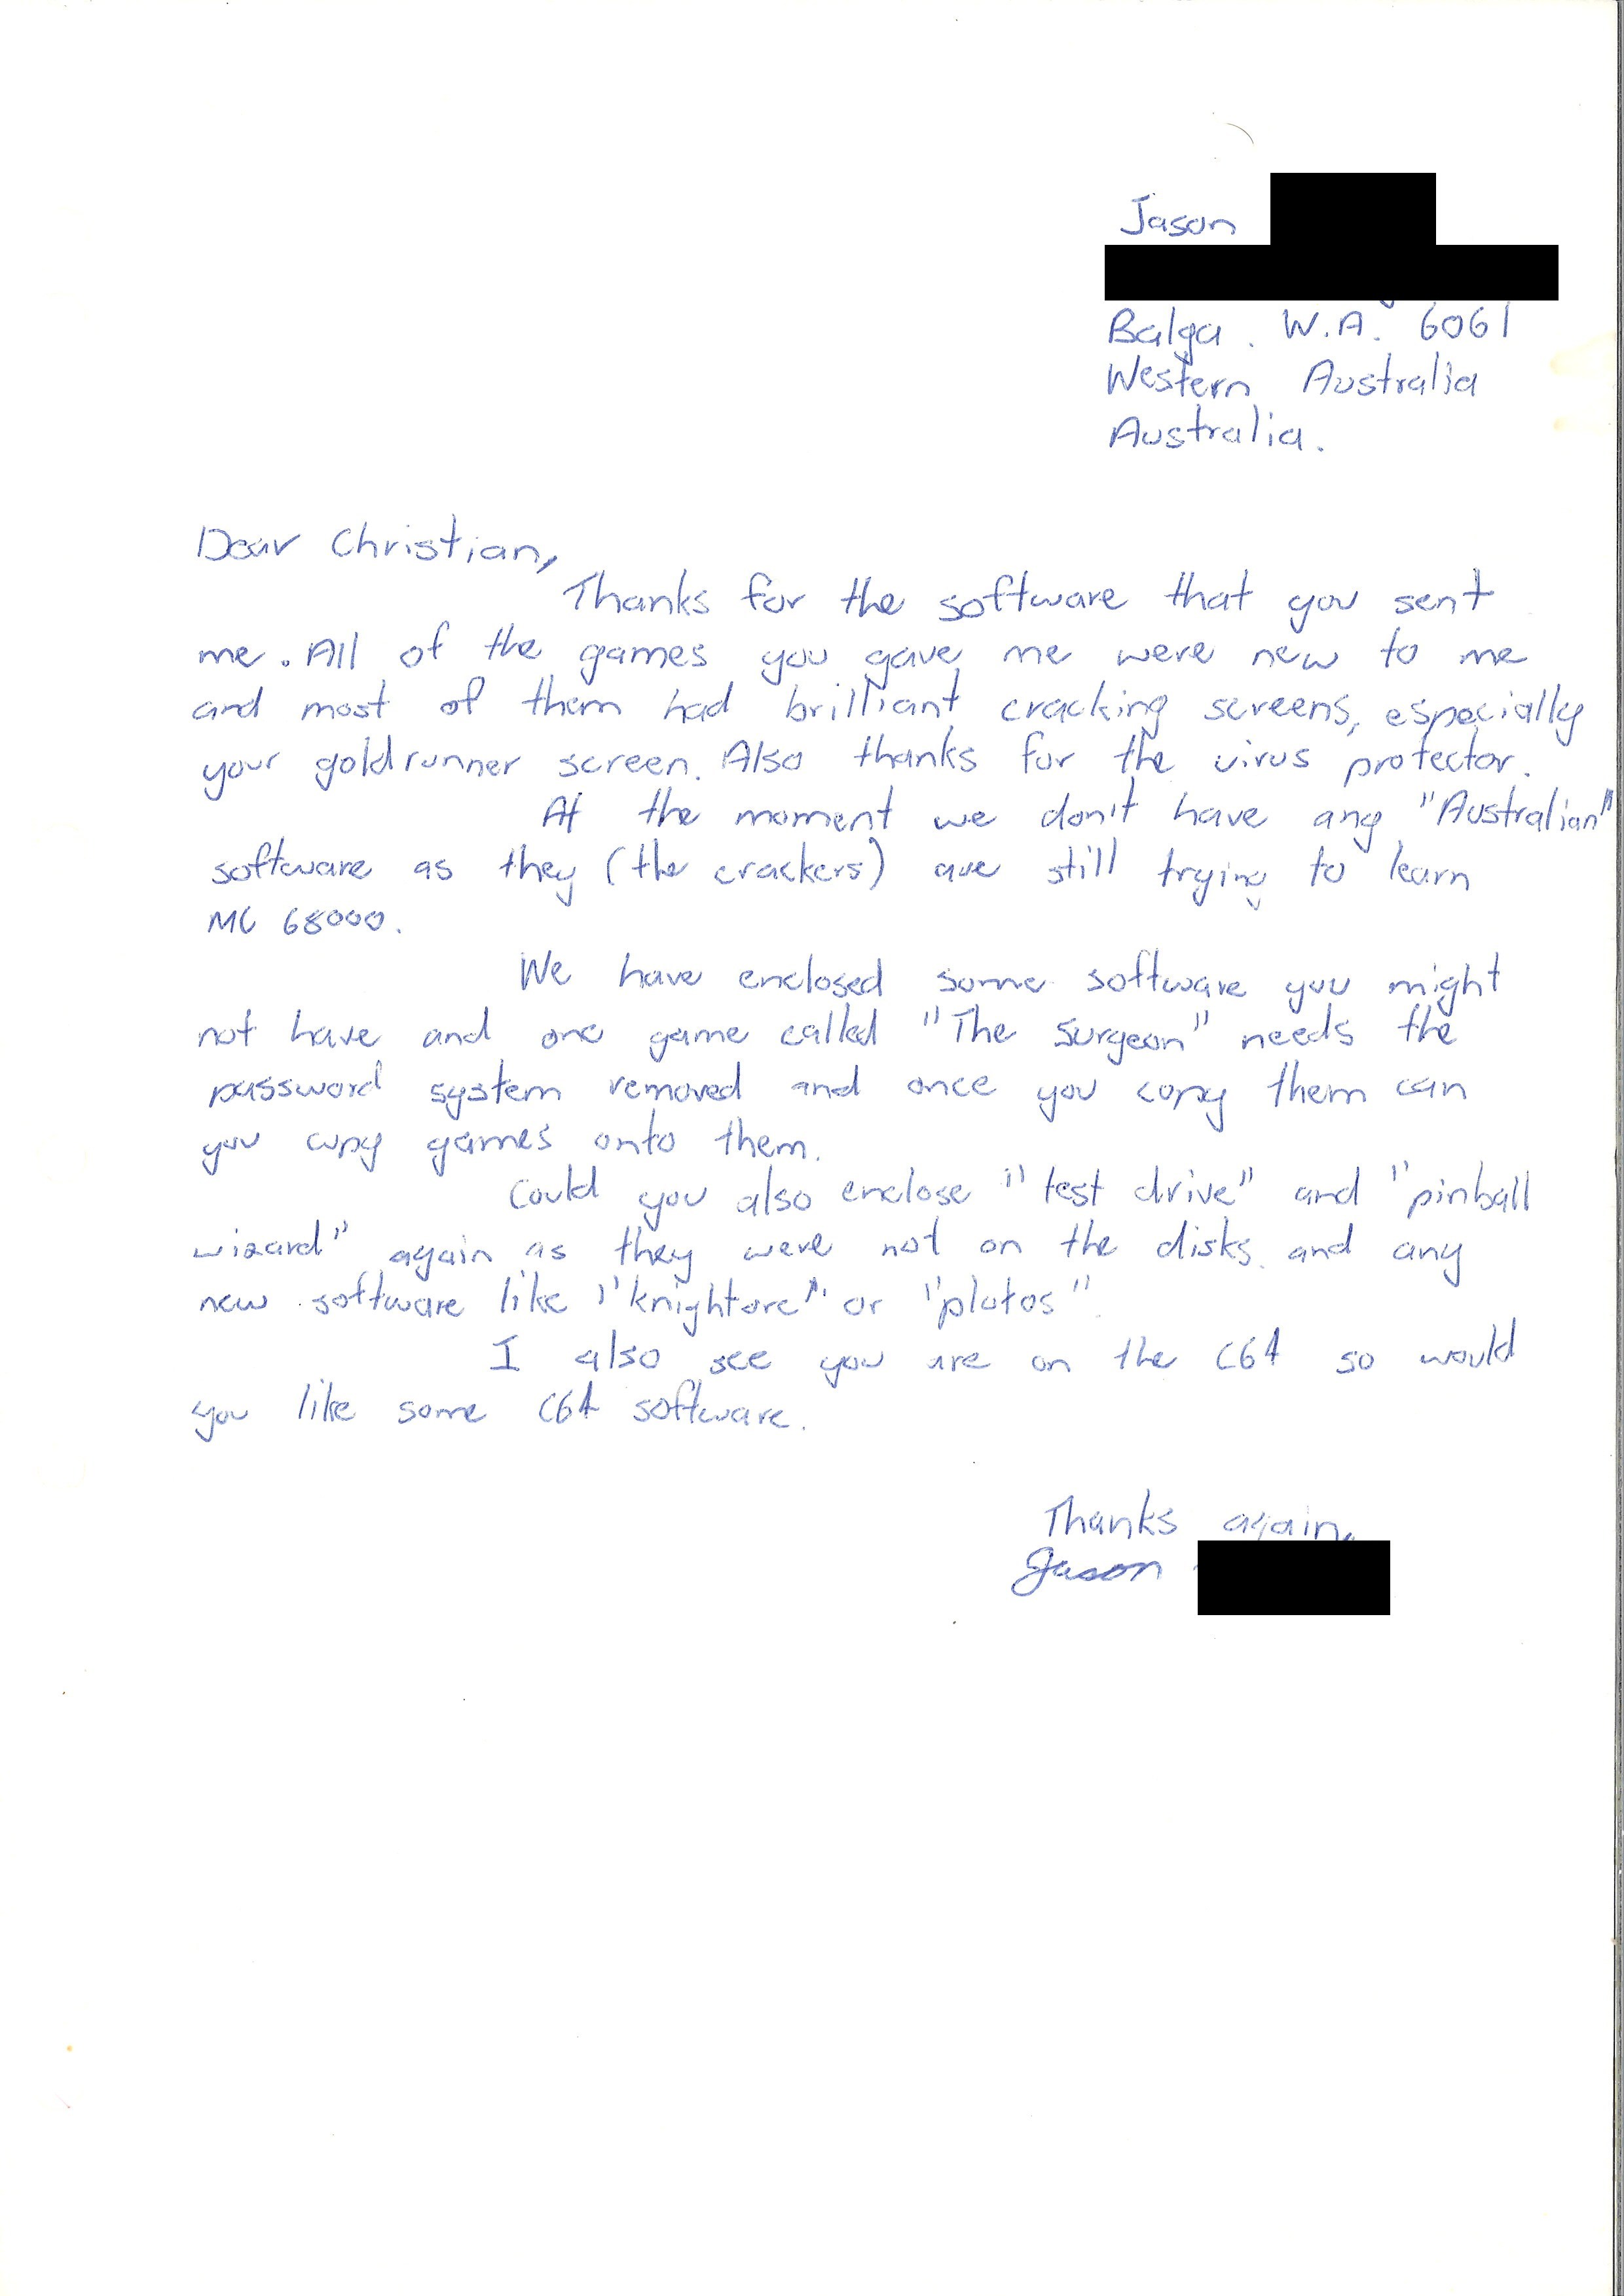 Jason
Balga. W.A. 6061
Western Australia
Australia.
Dear Christian,
Thanks for the software that you sent
me. All of the games you gave me were new to me
and most of them had brilliant cracking screens, especially
your goldrunner screen. Also thanks for the virus protector.
At the moment we don't have any "Australian"
software as they (the crackers) are still trying to learn
MC 68000.
We have enclosed some software you might
not have and one game called "The Surgeon" needs the
password system removed and once you copy them can
you copy games onto them.
Could you also enclose "test drive" and "pinball
wizard" again as they were not on the disks and any
new software like "knightorc" or "plutos".
I also see you are on the C64 so would
you like some C64 software.
Thanks again,
Jason